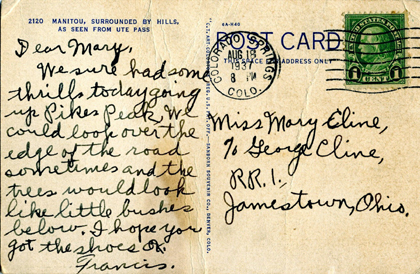 2120 MANITOU, SURROUNDED BY HILLS,
AS SEEN FROM UTE PASS
Dear Mary,
We sure had some
thrills today going
up Pikes Peak. We
could look over the
edge of the road
sometimes and the
trees would look
like little bushes
below. I hope you
got the shoes ok.
Francis.
6A-H40
POST CARD
THIS SPACE FOR ADDRESS ONLY
COLORADO SPRINGS
AUG 18
8 PM
1937
COLO.
UNITED STATES POSTAGE
1 1
CENT
Miss Mary Cline,
℅ George Cline,
R.R.1.,
Jamestown, Ohio.